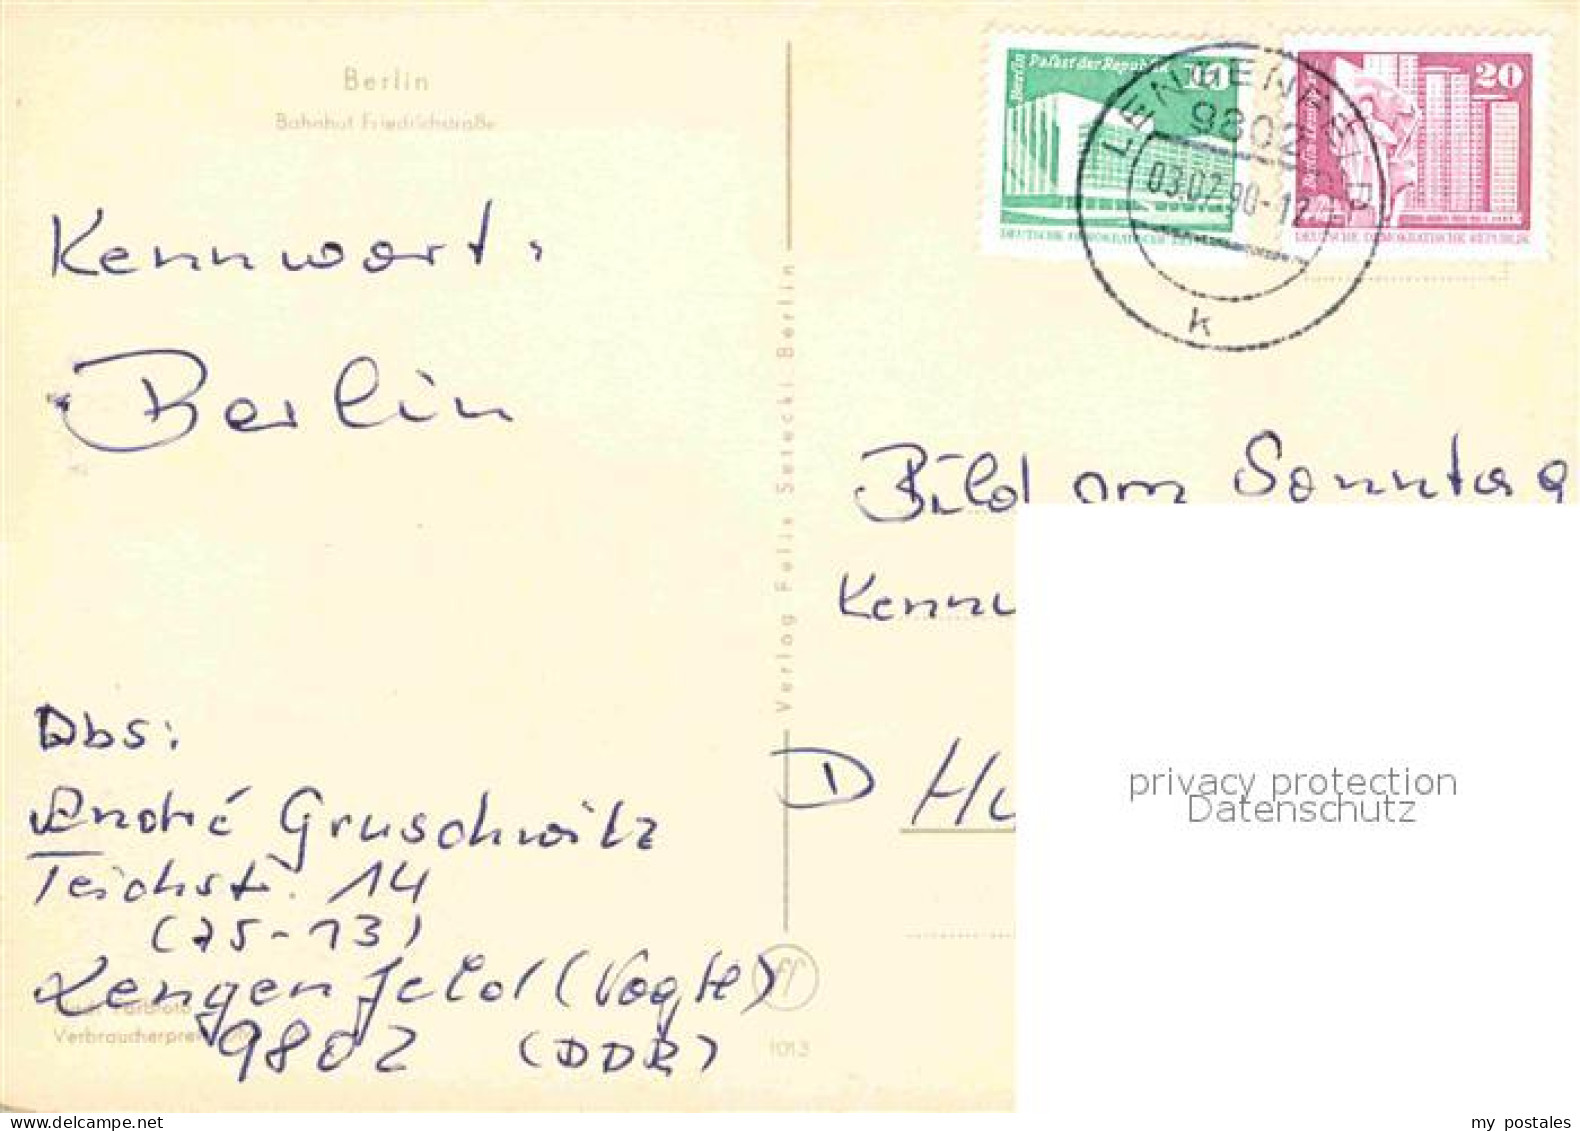 Berlin
Bahnhof Friedrichstraße
Kennwort:
Berlin
Abs:
André Gruschwitz
Teichstr. 14
(75-13)
Lengenfeld (Vogtl)
9802 (DDR)
Verbraucherpreis
1013
Verlag Felix Setecki, Berlin
Berlin Palast der Republik 10
DEUTSCHE DEMOKRATISCHE
20
Berlin
DEUTSCHE DEMOKRATISCHE REPUBLIK
LENGENFELD
9802
03.07.90-12
k
Bild am Sonntag
Kennw
D Hu
privacy protection
Datenschutz
my postales